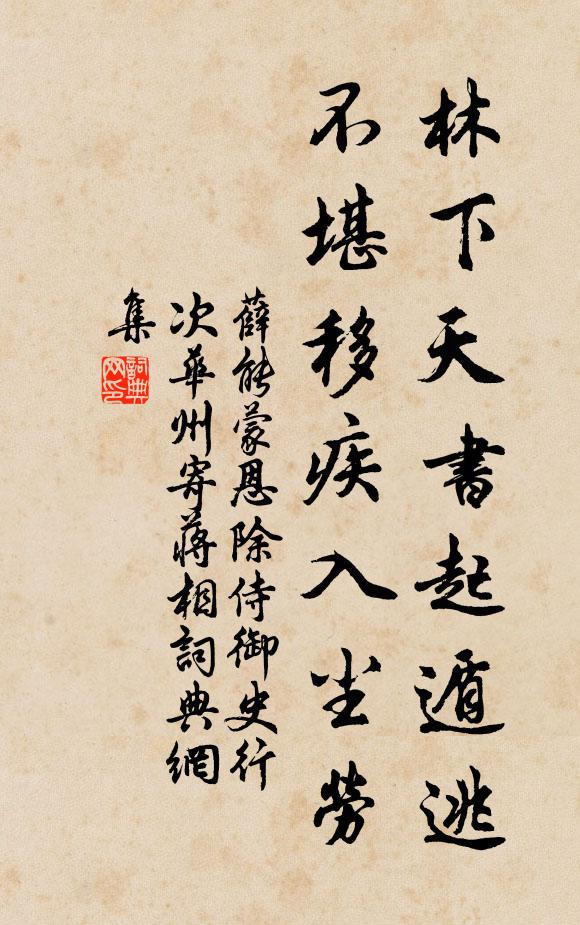 林下天書起遁逃
不堪移疾入尘勞
薛能蒙恩除侍御史行
次華州寄蔣相詞典網
集
詞典网印